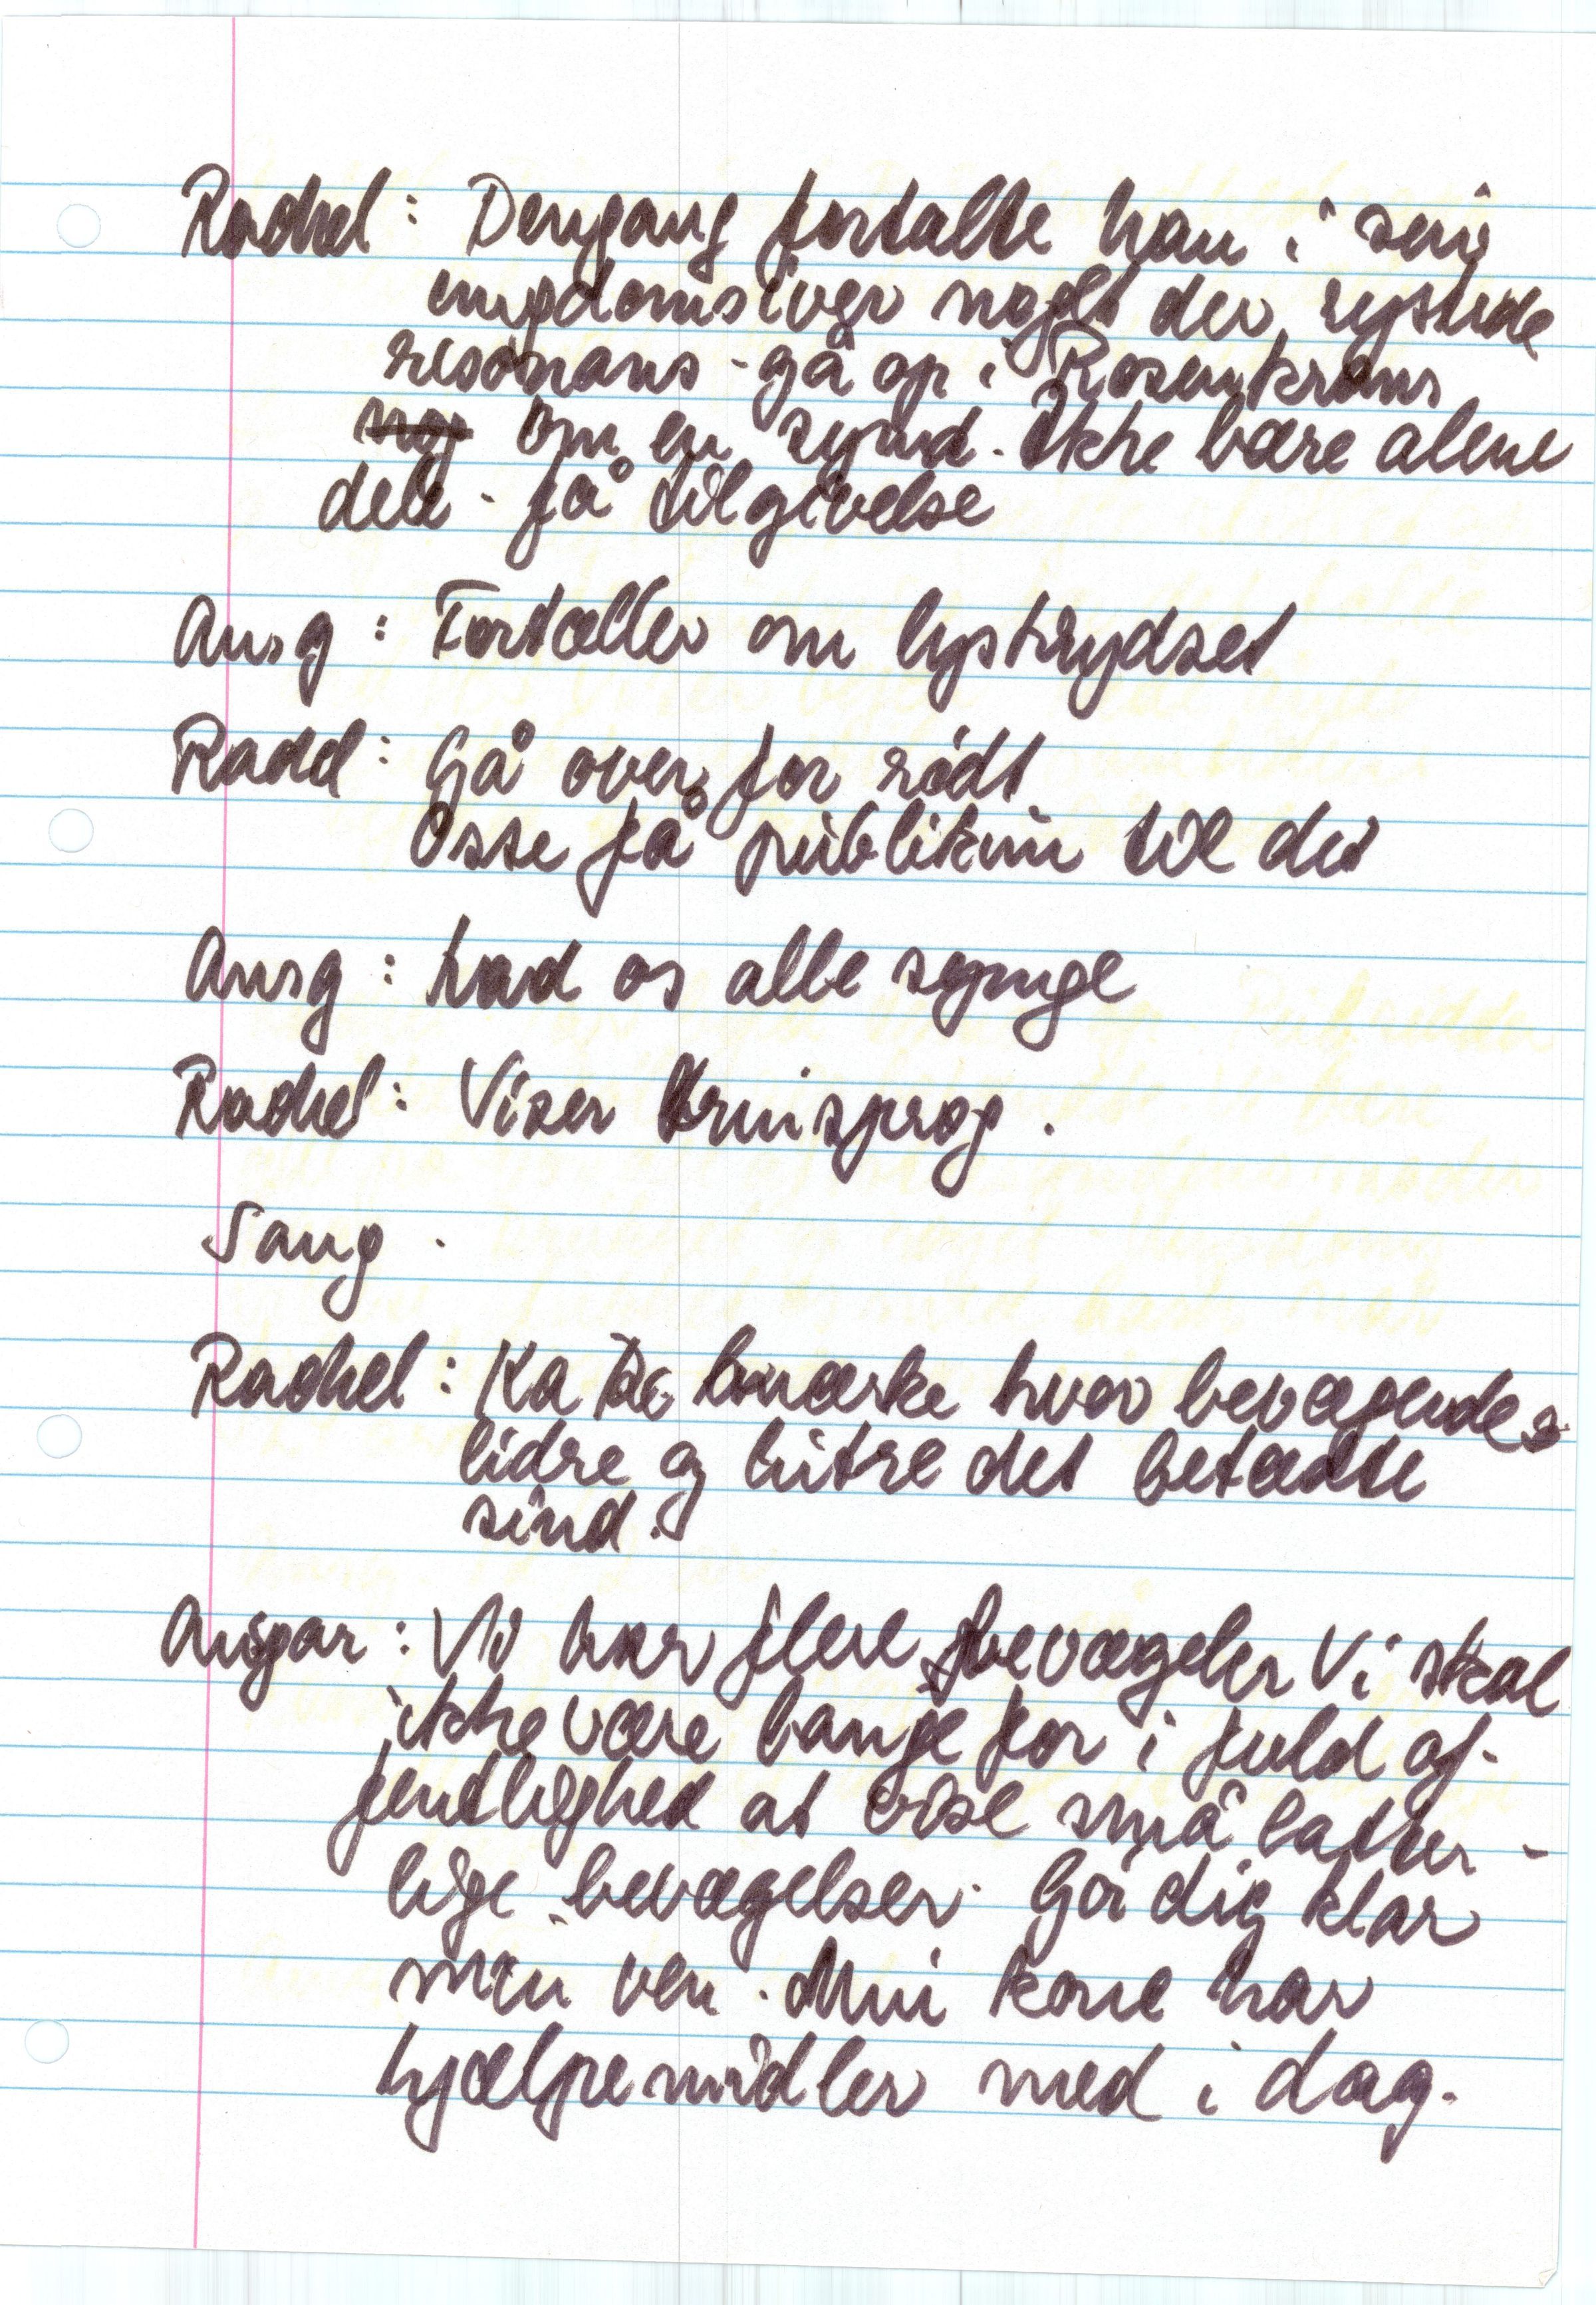 Rachel: Dengang fortalte han i sin
ungdomsiver noget der, rystede
resonans - gå op i Rosenkrans
om en synd. Ikke bære alene
dele - få tilgivelse
Ansg: Fortæller om lyskrydset
Rachel: Gå over for rødt
Osse få publikum til det
Ansg: Lad os alle synge
Rachel: Viser krimisprog.
Sang.
Rachel: Ka De bemærke hvor bevægende
lidre og kitre det betændte
sind.
Ansgar: Vi har flere bevægelser Vi skal
ikke være bange for i fuld of-
fentlighed at vise små latter-
lige bevægelser. Gør dig klar
min ven. Min kone har
hjælpemidler med i dag.